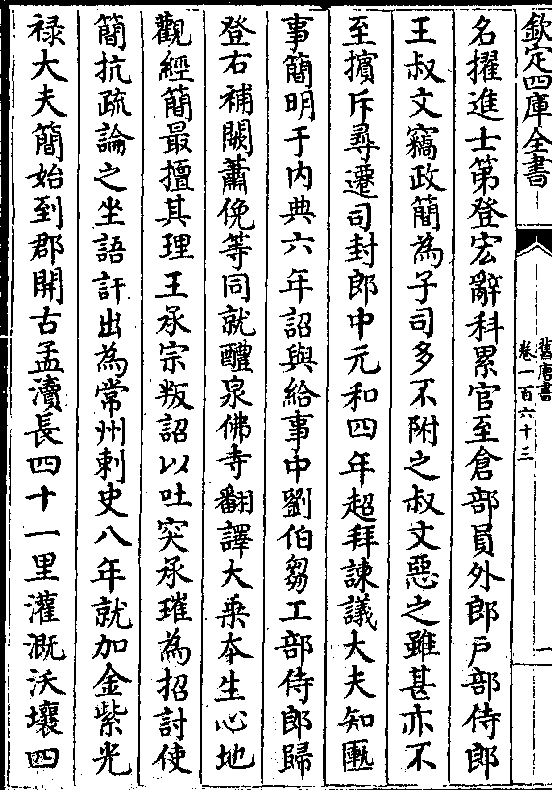 欽定四庫全書
舊唐書
卷一百六十三
一
名擢進士第登宏辭科累官至倉部員外郎戶部侍郎
王叔文竊政簡為子司多不附之叔文惡之雖甚亦不
至擯斥尋遷司封郎中元和四年超拜諫議大夫知匭
事簡明于内典六年詔與給事中劉伯芻工部侍郎歸
登右補闕蕭俛等同就醴泉佛寺翻譯大乗本生心地
觀經簡最擅其理王承宗叛詔以吐突承璀為招討使
簡抗疏論之坐語訐出為常州刺史八年就加金紫光
禄大夫簡始到郡開古孟瀆長四十一里灌溉沃壤四